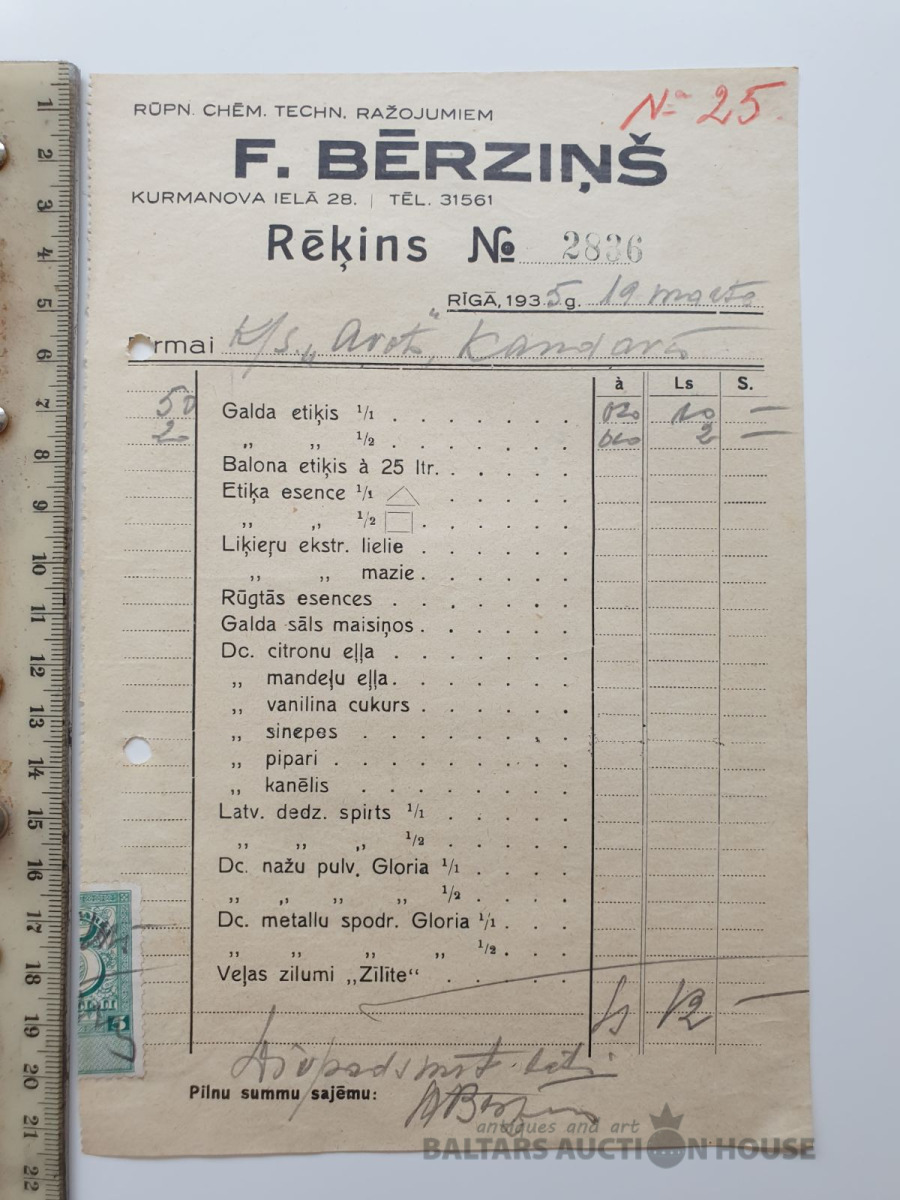 RŪPN. CHĒM. TECHN. RAŽOJUMIEM
№ 25.
F. BĒRZIŅŠ
KURMANOVA IELĀ 28. | TĒL. 31561
Rēķins № 2836
RĪGĀ, 1935 g. 19 marta
rmai K/s. „ , Kandavā
à Ls S.
50 Galda etiķis 1/1 0.20 10 —
20 „ „ 1/2 0.10 2 —
Balona etiķis à 25 ltr.
Etiķa esence 1/1
„ „ 1/2
Liķieŗu ekstr. lielie
„ „ mazie
Rūgtās esences
Galda sāls maisiņos
Dc. citronu eļļa
„ mandeļu eļļa
„ vanilina cukurs
„ sinepes
„ pipari
„ kanēlis
Latv. dedz. spirts 1/1
„ „ „ 1/2
Dc. nažu pulv. Gloria 1/1
„ „ „ „ 1/2
Dc. metallu spodr. Gloria 1/1
„ „ „ „ 1/2
Veļas zilumi „Zīlīte“
Ls 12 —
Divpadsmit lati
Pilnu summu sajēmu:
5
antiques and art
BALTARS AUCTION HOUSE
1
2
3
4
5
6
7
8
9
10
11
12
13
14
15
16
17
18
19
20
21
22